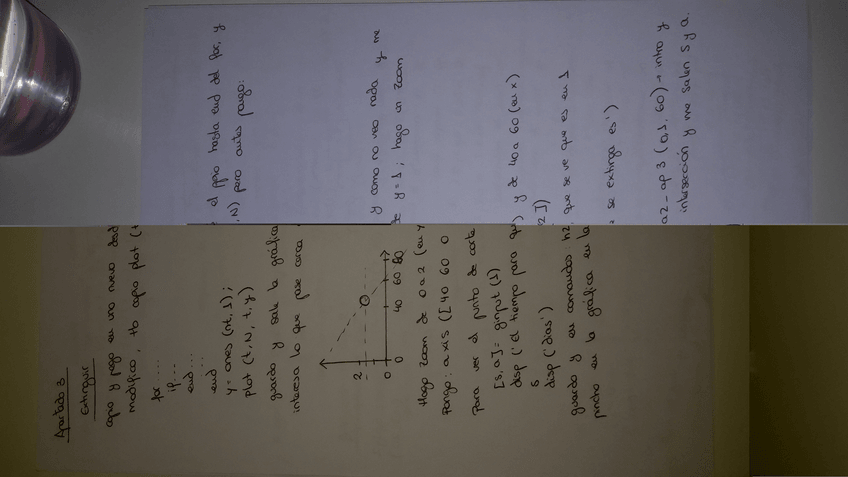 Apartado 3
Extinguir
copio y pego en uno nuevo desde el ppio hasta end del for, y
modifico, tb copio plot (t, N) pero antes pongo:
for ...
if ...
end ...
end
y = ones (nt, 1);
plot (t, N, t, y)
guardo y sale la gráfica y como no veo nada y me
interesa lo que pase cerca de y=1; hago un zoom
2
0
0 40 60 80
Hago zoom de 0 a 2 (en y) y de 40 a 60 (en x)
Pongo: axis ([40 60 0 2])
Para ver el punto de corte que se ve que es en 1
[s, a] = ginput (1)
disp ('El tiempo para que se extinga es')
s
disp ('días')
guardo y en comandos h2a2_ap3 (0,1,60) → intro y
pincho en la gráfica en la intersección y me salen s y a.